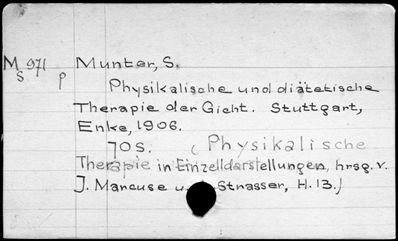 M 971 Munter, S.
S p
Physikalische und diätetische
Therapie der Gicht. Stuttgart,
Enke, 1906.
70 S. (Physikalische
Therapie in Einzeldarstellungen, hrsg. v.
J. Marcuse u. Strasser, H. 13.)